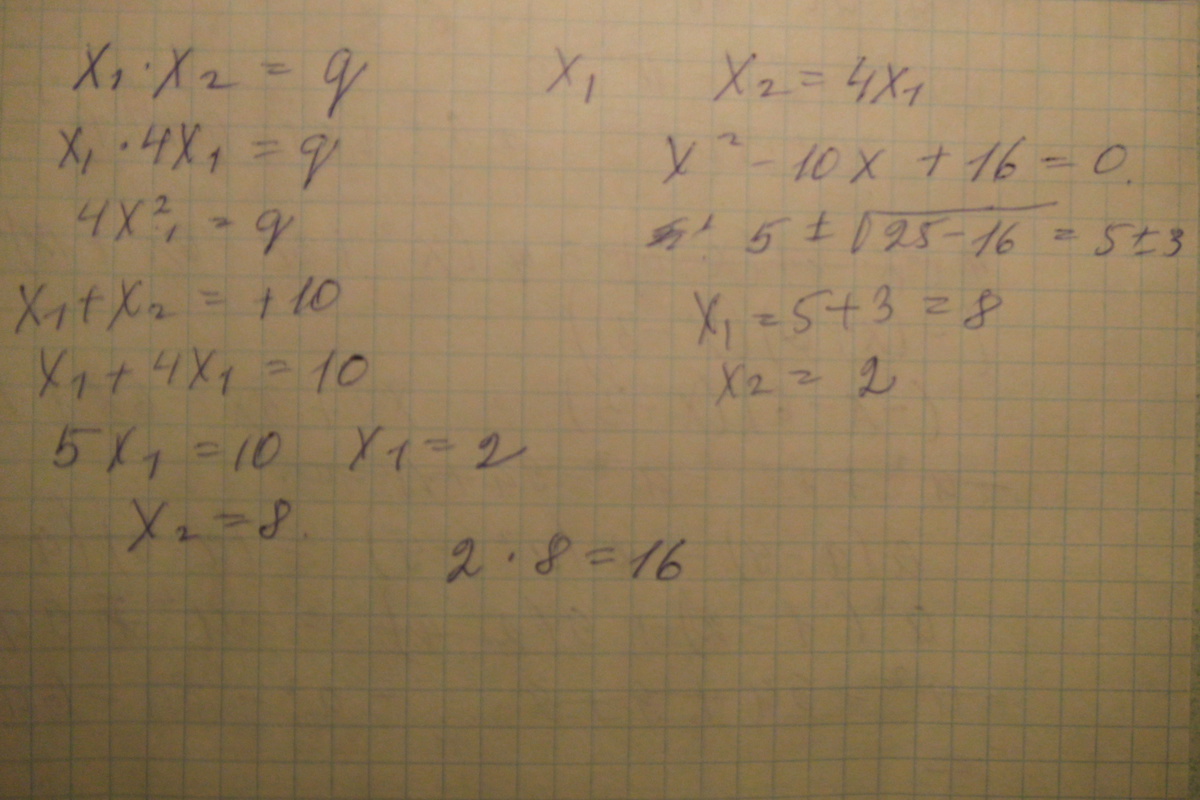 x₁ · x₂ = q
x₁ · 4x₁ = q
4x₁² = q
x₁ + x₂ = +10
x₁ + 4x₁ = 10
5x₁ = 10 x₁ = 2
x₂ = 8.
2 · 8 = 16
x₁ x₂ = 4x₁
x² - 10x + 16 = 0.
5 ± √25-16 = 5±3
x₁ = 5+3 = 8
x₂ = 2